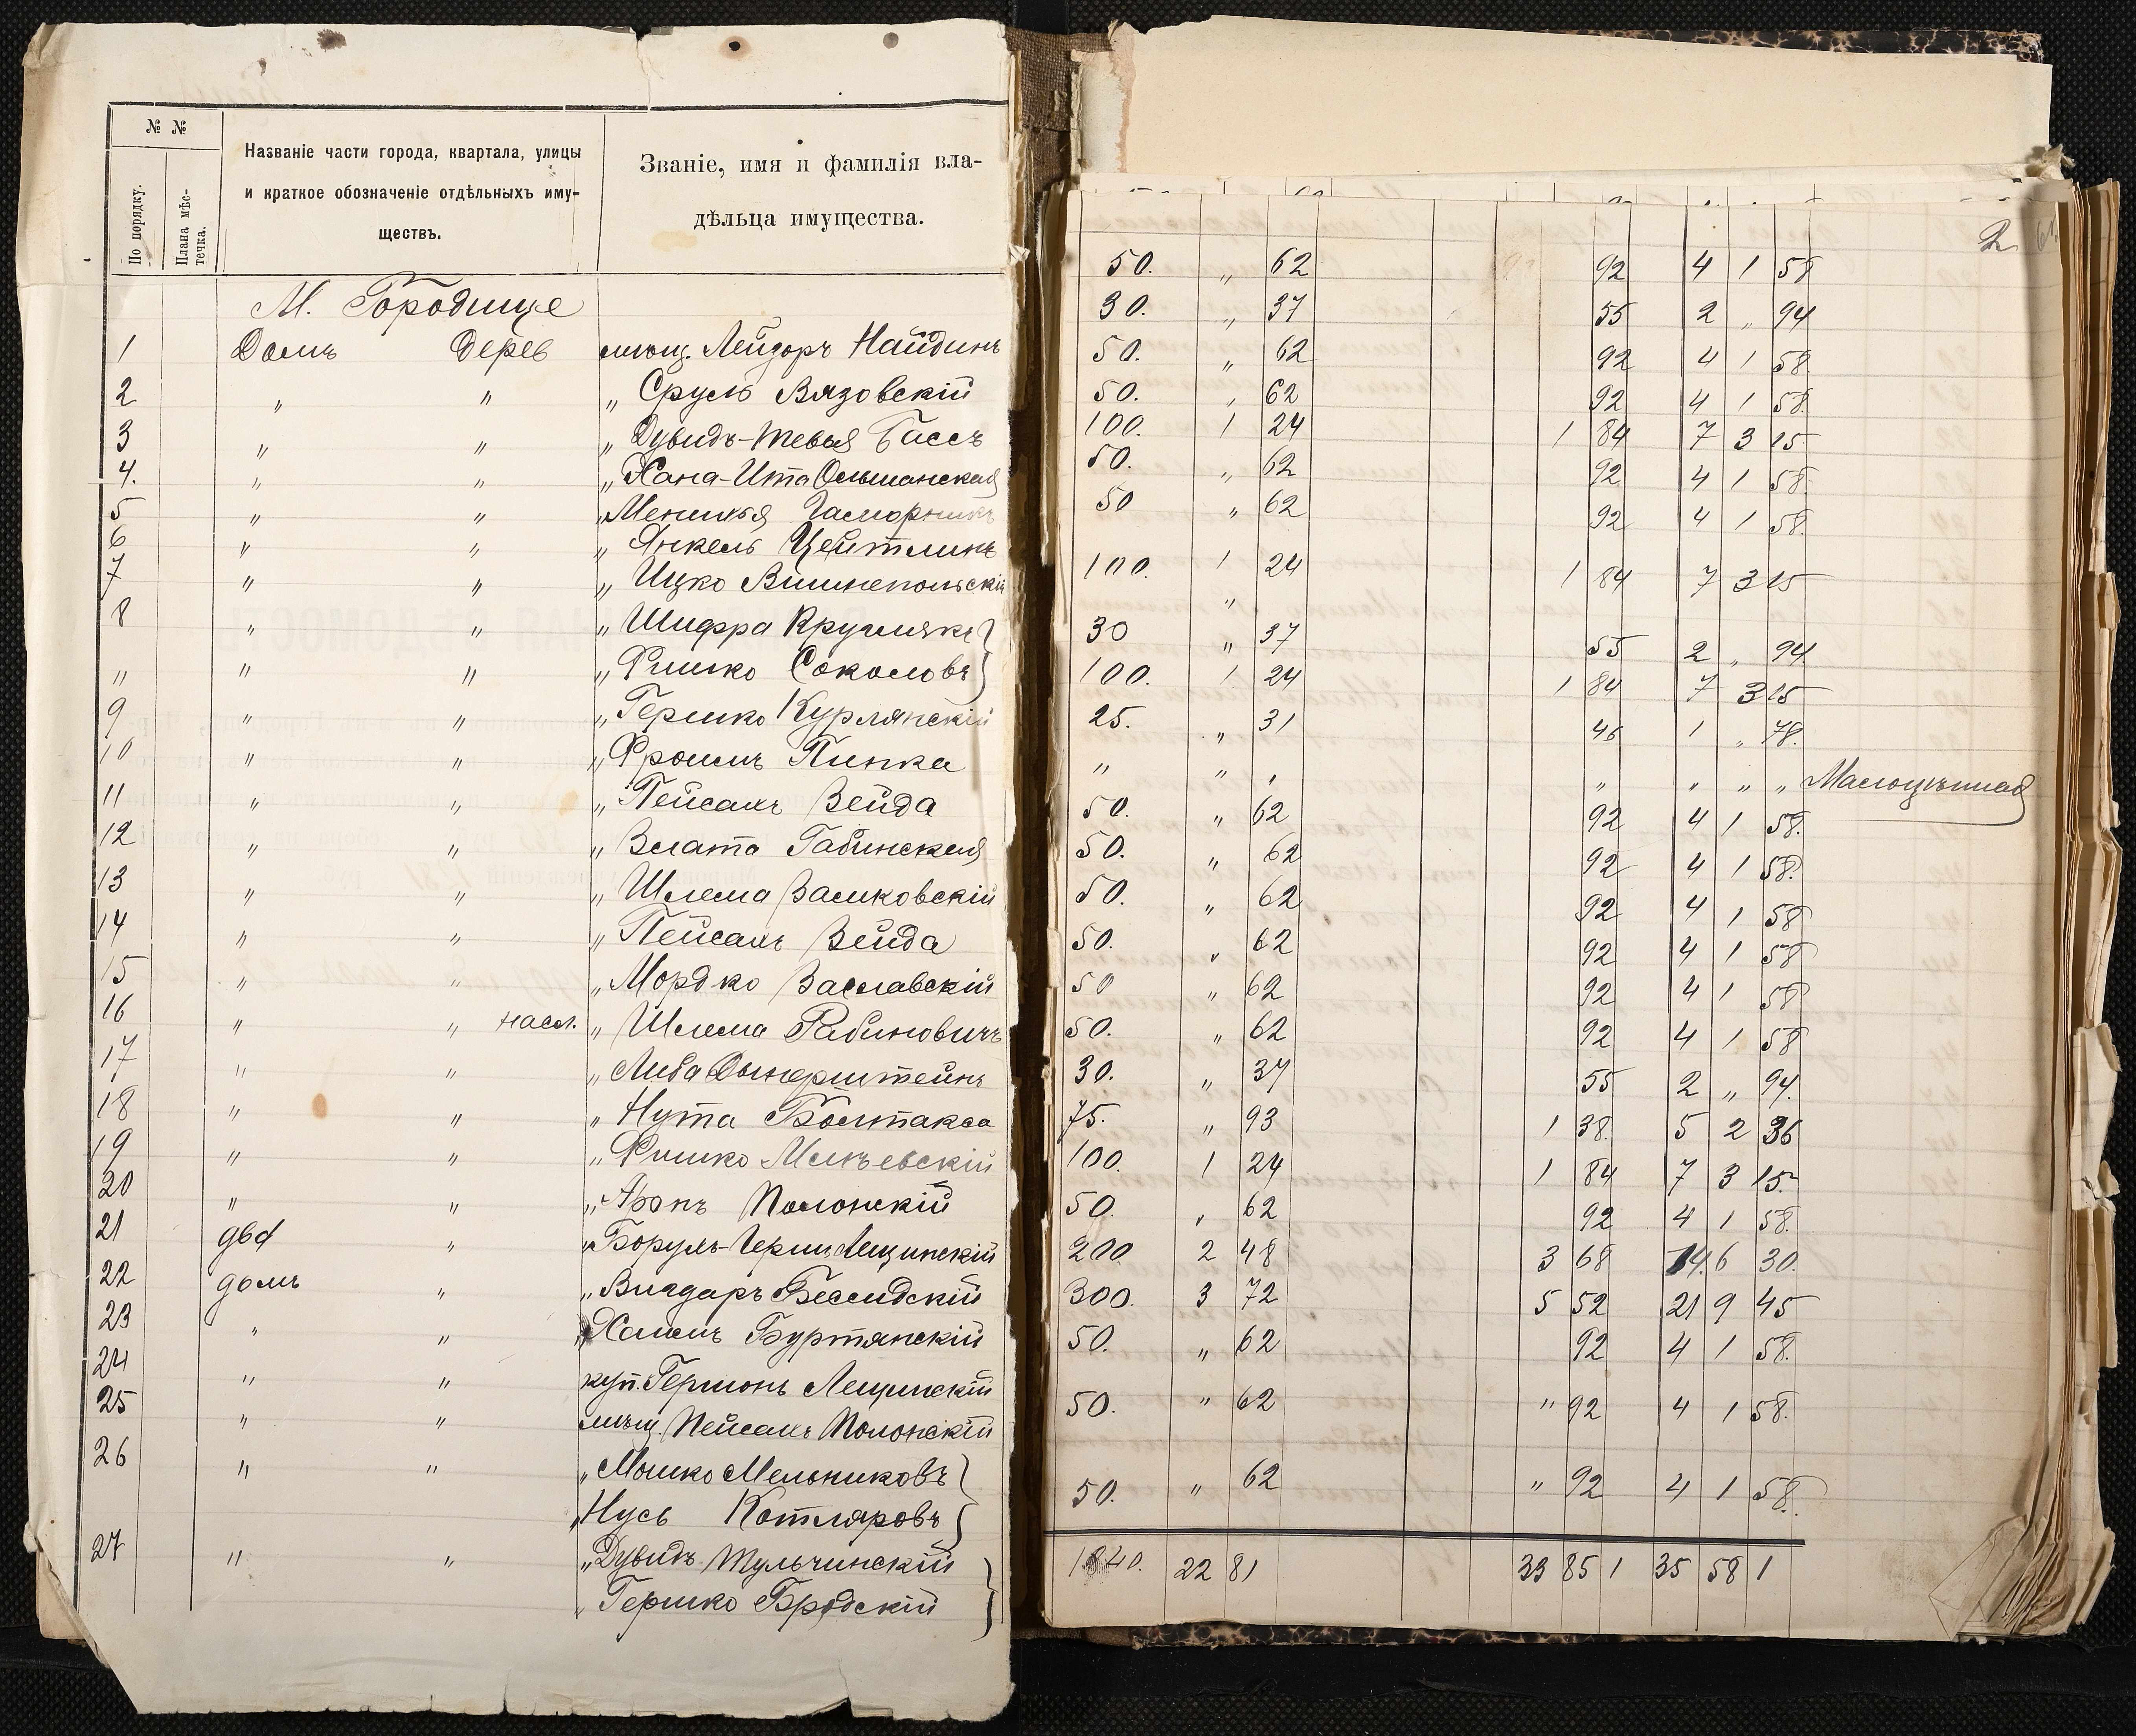 № №
По порядку.
Плана мѣстечка.
Названіе части города, квартала, улицы
и краткое обозначеніе отдѣльныхъ иму-
ществъ.
Званіе, имя и фамилія вла-
дѣльца имущества.
М. Городище
1 Домъ Дерев мѣщ. Лейзоръ Найдинъ
2 " " " Сруль Вязовскій
3 " " " Дувидъ-Тевья Бассъ
4. " " " Хана-Ита Ольшанская
5 " " "
6 " " " Янкель Цейтлинъ
7 " " " Ицко Вишнепольскій
8 " " " Шифра Кругляке
" " " " Фишко Соколовъ
9 " " " Гершко Курлянскій
10 " " " Фроимъ Пинка
11 " " " Пейсахъ Зейда
12 " " " Злата Рабинская
13 " " " Шлема Заславскій
14 " " " Пейсахъ Зейда
15 " " " Мордко Заславскій
16 " " насл. " Шлема Рабиновичъ
17 " " " Либа
18 " " " Нута Болтакса
19 " " " Фишко
20 " " " Аронъ Полонскій
21 два " " Лещинскій
22 домъ " "
23 " " " Хаимъ Буртянскій
24 " " куп. Гершонъ Лещинскій
25 " " мѣщ. Пейсахъ Полонскій
26 " " " Мошко Мельниковъ
" Нусь Котляровъ
27 " " " Дувидъ Тульчинскій
" Гершко Бродскій
2
50. " 62 92 4 1 58
30. " 37 55 2 " 94
50. " 62 92 4 1 58
50. " 62 92 4 1 58.
100. 1 24 1 84 7 3 15
50. " 62 92 4 1 58.
50 " 62 92 4 1 58.
100. 1 24 1 84 7 3 15
"
30 " 37 55 2 " 94
100. 1 24 1 84 7 3 15
25. " 31 46 1 " 78.
" " " " " " " Малоцѣнная
50. " 62 92 4 1 58.
50. " 62 92 4 1 58.
50. " 62 92 4 1 58
50. " 62 92 4 1 58
50 " 62 92 4 1 58
50. " 62 92 4 1 58
30. " 37 55 2 " 94.
75. " 93 1 38. 5 2 36
100. 1 24 1 84 7 3 15.
50. " 62 92 4 1 58.
200. 2 48 3 68 14. 6 30.
300. 3 72 5 52 21 9 45
50. " 62 92 4 1 58.
50. " 62 " 92 4 1 58.
50. " 62 " 92 4 1 58.
1840. 22 81 33 85 1 35 58 1